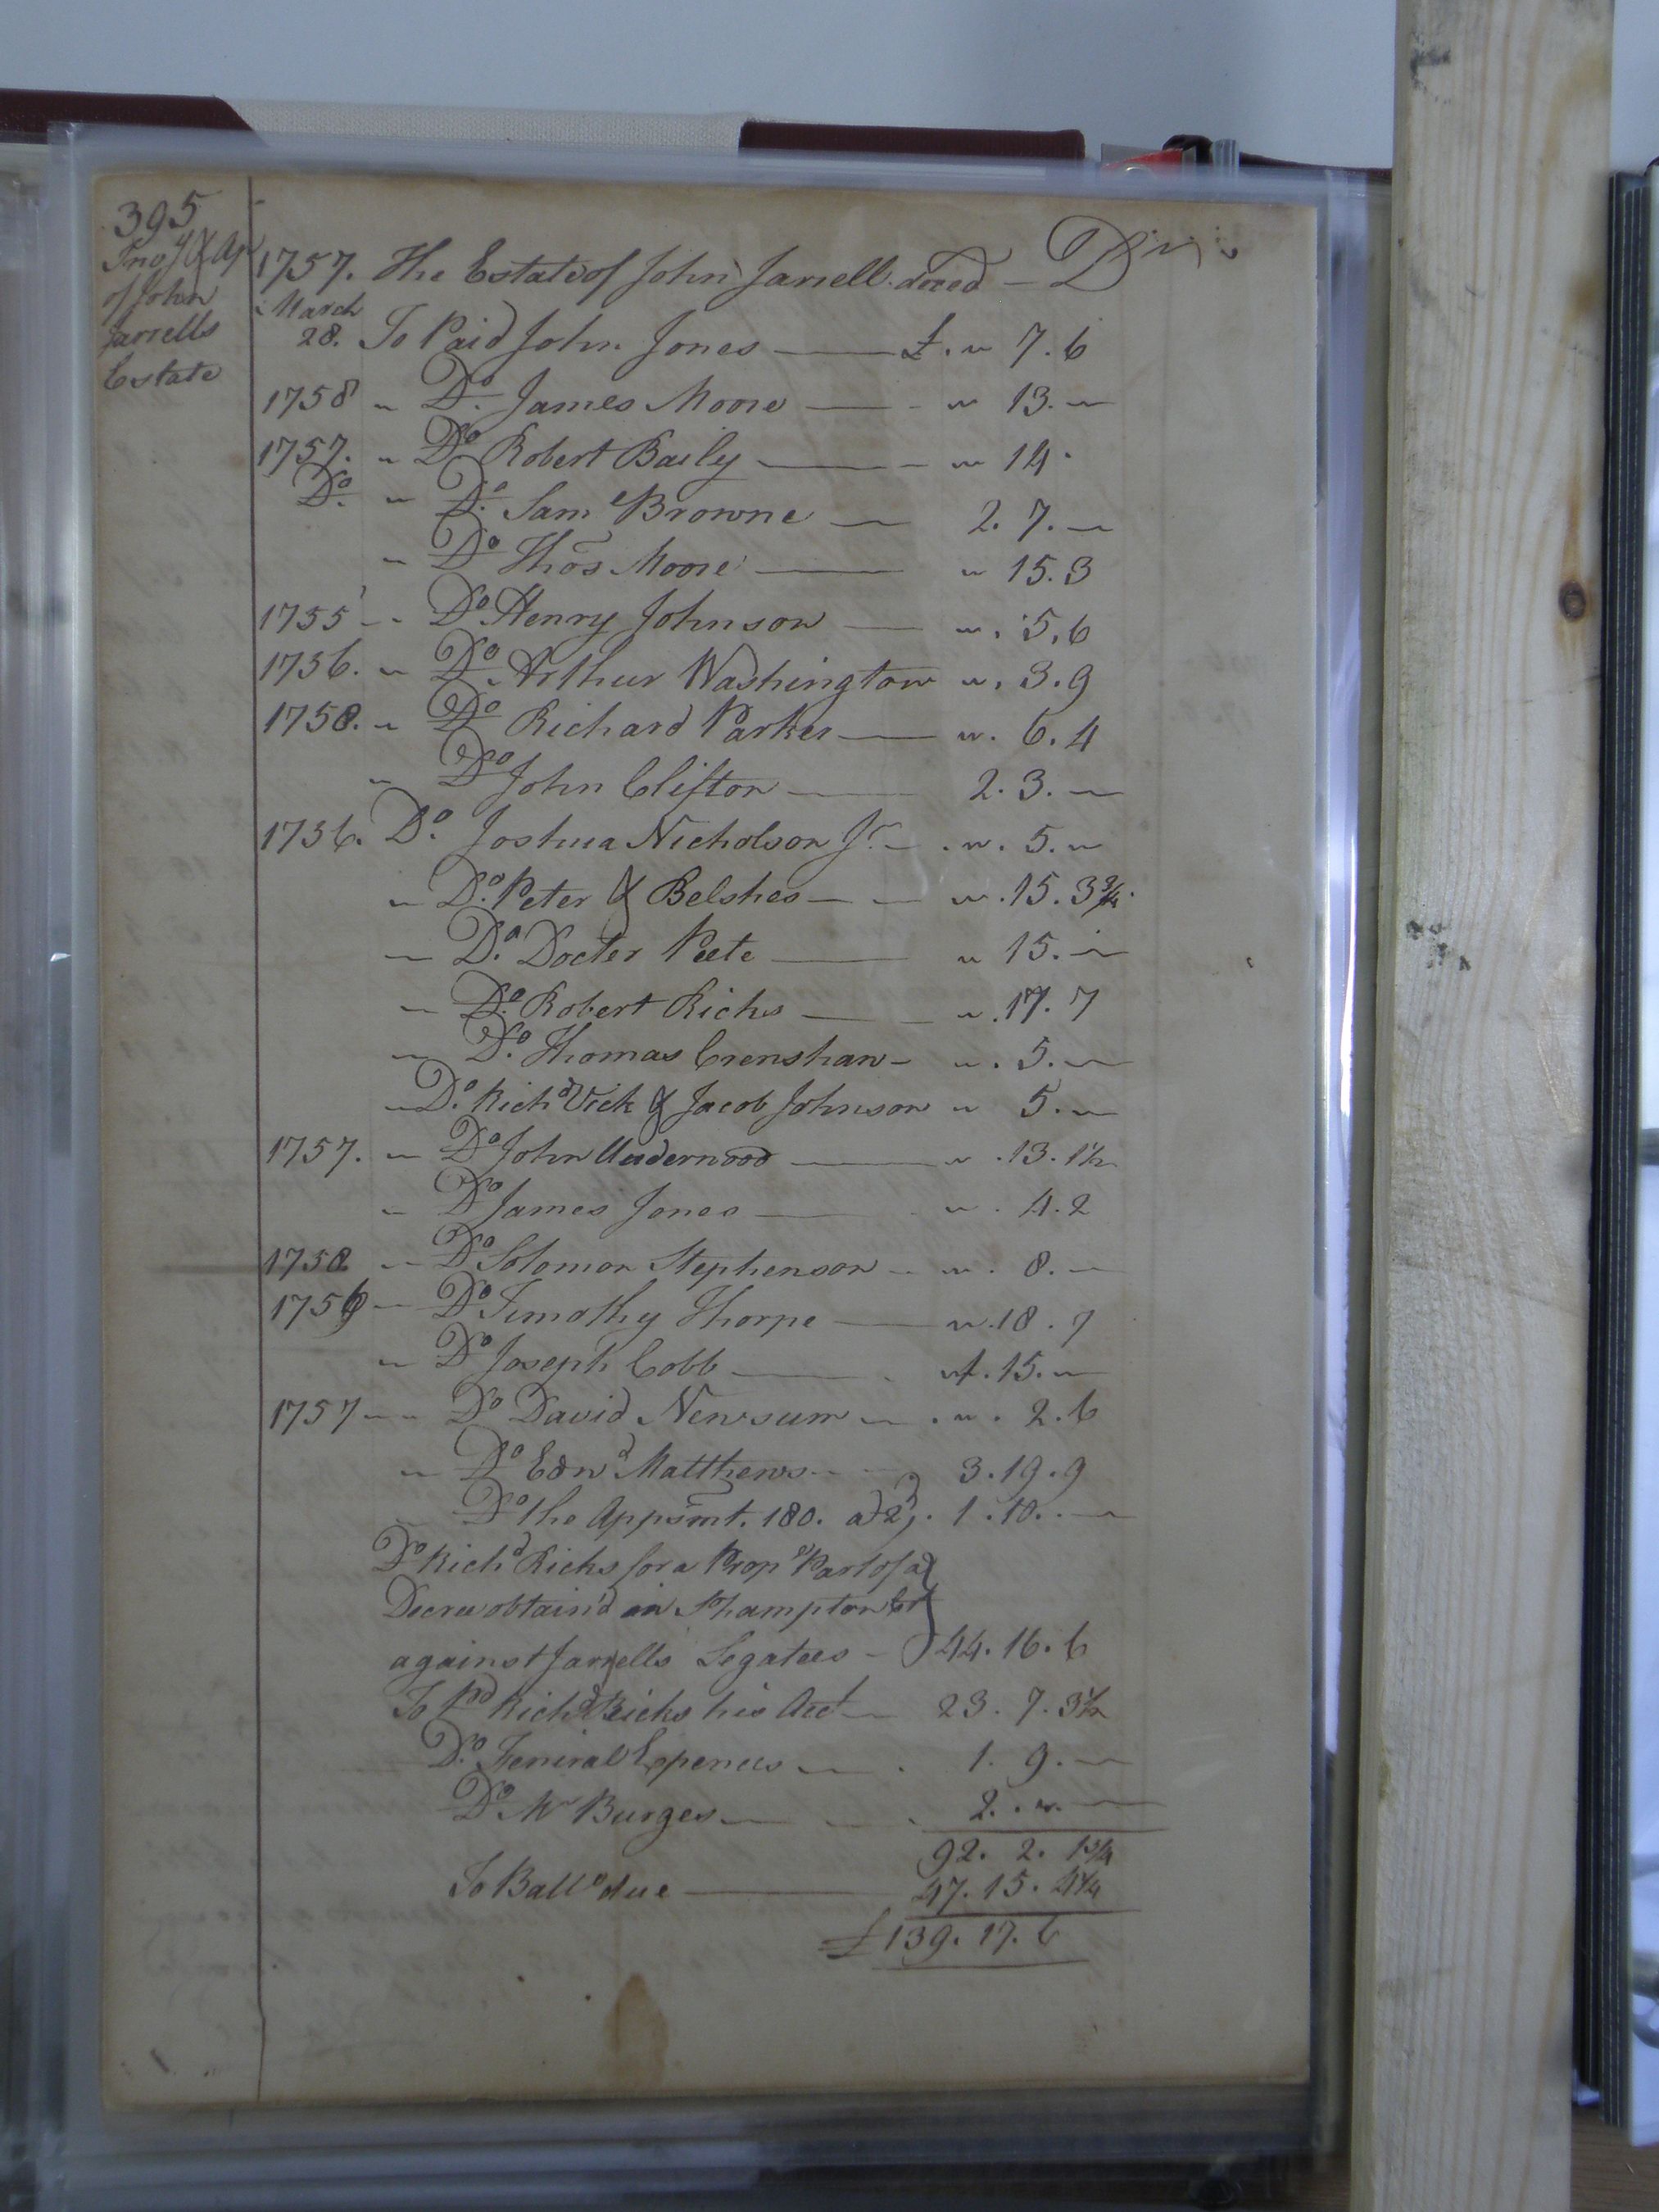 395
Inv.y & Ap
of John
Jarrells
Estate
1757. The Estate of John Jarrell. deced — Dr
March
28. To Paid John Jones — £. " 7. 6
1758 " Do. James Moore — " 13. "
1757. " Do Robert Baily — " 14.
Do. " Do. Saml Browne — 2. 7. "
" Do Thos Moore — " 15. 3
1755 " Do Henry Johnson — ". 5. 6
1756. " Do. Arthur Washington ". 3. 9
1758. " Do Richard Parker — ". 6. 4
" Do John Clifton — 2. 3. "
1756. Do. Joshua Nicholson Jr. — . ". 5. "
" Do. Peter & Belshes — ". 15. 3¾
" Do. Docter Peete — " 15. "
" Do. Robert Ricks — ". 17. 7
" Do. Thomas Crenshaw — ". 5. "
" Do. Richd Vick & Jacob Johnson " 5. "
1757. " Do John Underwood — ". 13. 1½
" Do James Jones — ". 4. 2
1758 " Do Solomon Stephenson — ". 8. "
1756 " Do Timothy Thorpe — ". 18. 9
" Do Joseph Cobb — 15. "
1757 " Do David Newsum — . ". 2. 6
" Do Edwd Matthews — 3. 19. 9
Do the Appsmt. 180. a 2d. 1. 10. "
Do Richd Ricks for a Prop.r Part of a
Decree obtain'd in Shampton Ct
against Jarrells Legatees — 44. 16. 6
To Pd Richd Ricks his Acct — 23. 7. 3½
Do. Feniral Expences — 1. 9. "
Do Mr Burges — 2. ". "
92. 2. 1¾
To Balla due — 47. 15. 4¼
£139. 17. 6